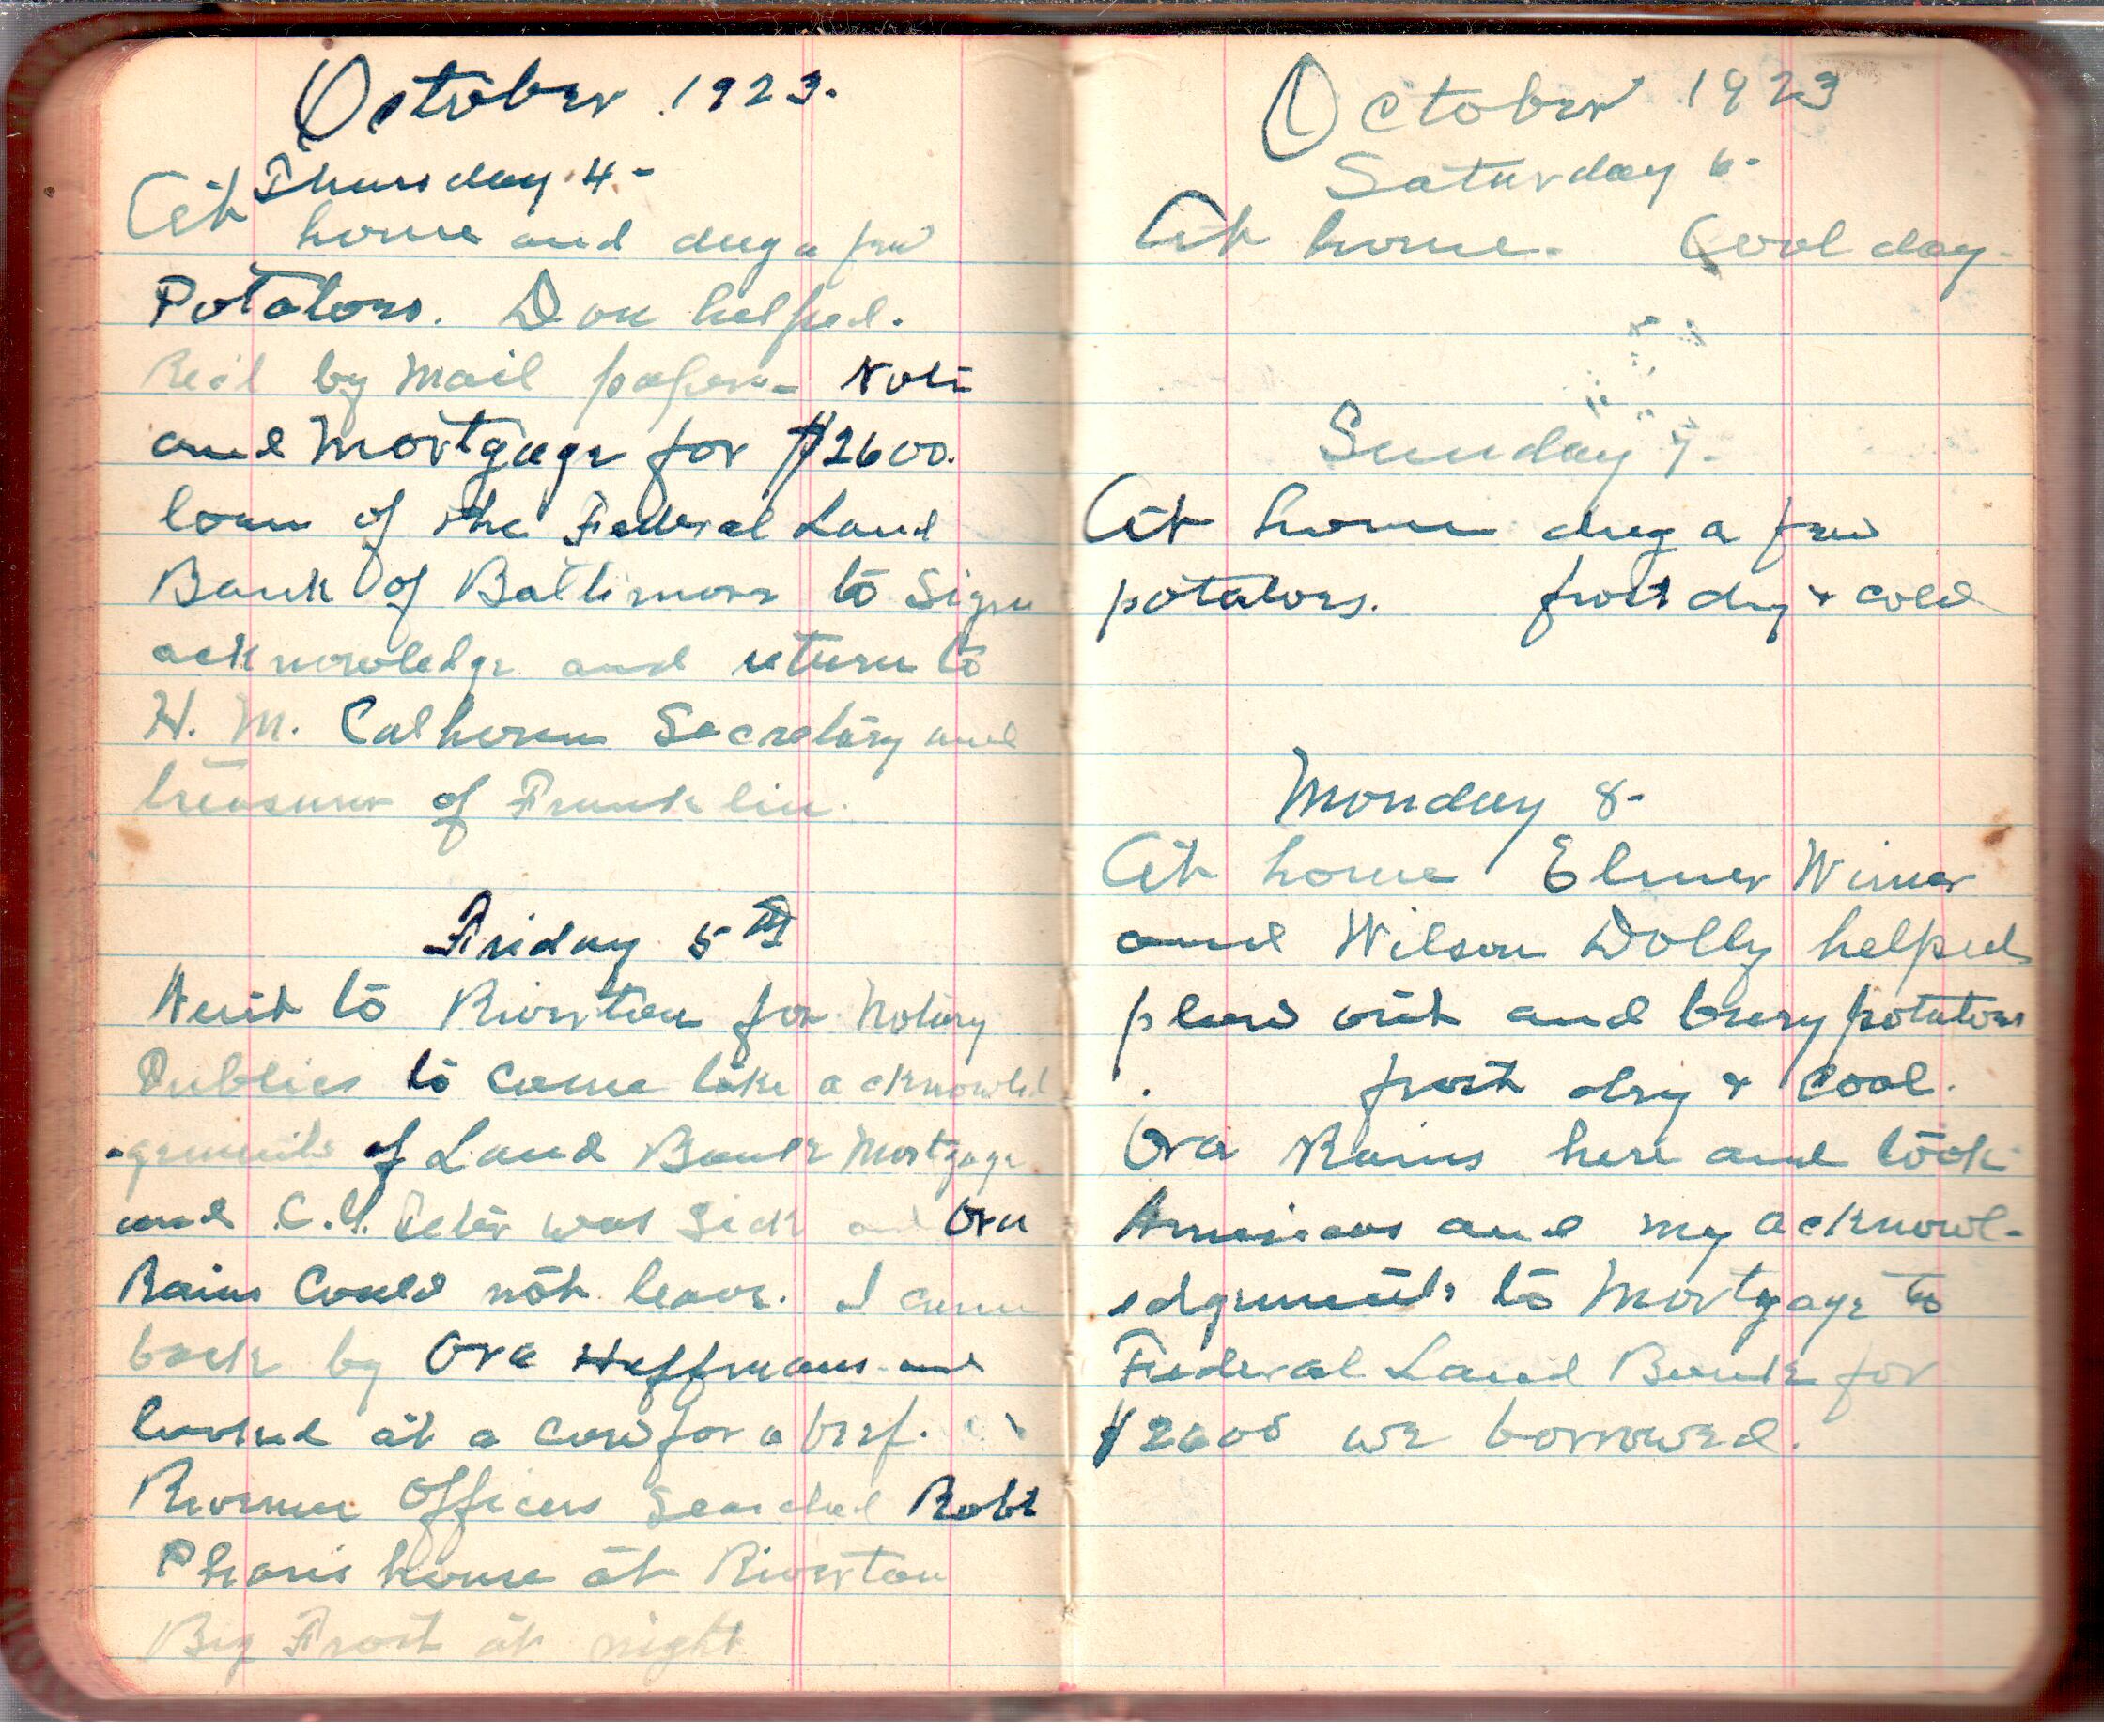 October 1923.
Thursday 4-
At home and dug a few
Potatoes. Don helped.
Rec'd by Mail papers- Note
and Mortgage for $2600.
loan of the Federal Land
Bank of Baltimore to Sign
acknowledge and return to
H. M. Calhoun Secretary and
treasurer of Franklin.
Friday 5th
Went to Riverton for Notary
Publics to come take acknowled
-gements of Land Bank Mortgage
and C. Teter was Sick and Ora
Rains Could not leave. I came
back by Ora Huffmans and
looked at a cow for a beef.
Revenue Officers Searched Robt
Pharis house at Riverton
Big Frost at night
October 1923
Saturday 6-
At home. Cool day-
Sunday 7-
At home dug a few
potatoes. frost dry & cold
Monday 8-
At home Elmer Wimer
and Wilson Dolly helped
plow out and bury potatoes
frost dry & cool.
Ora Rains here and took
Americas and my acknowl-
edgements to Mortgage to
Federal Land Bank for
$2600 we borrowed.